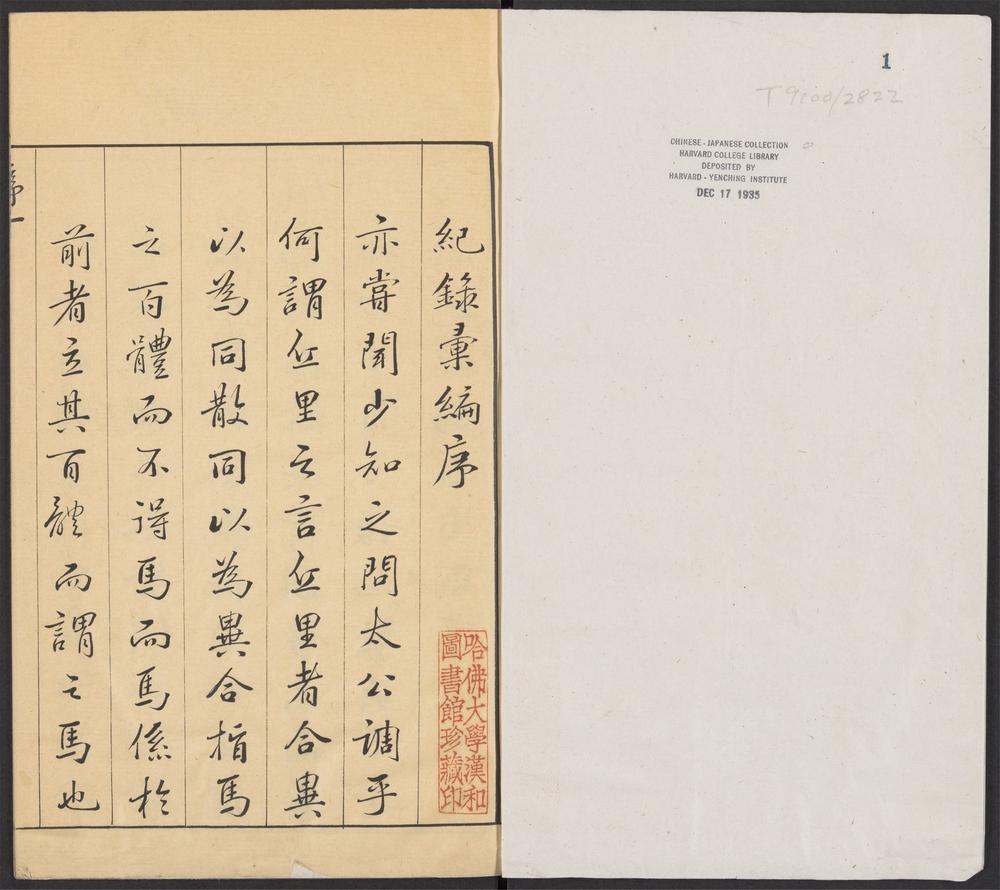 1
T 9100/2822
CHINESE - JAPANESE COLLECTION
HARVARD COLLEGE LIBRARY
DEPOSITED BY
HARVARD - YENCHING INSTITUTE
DEC 17 1935
紀錄彙編序
哈佛大學漢和
圖書館珍藏印
亦嘗聞少知之問太公調乎
何謂丘里之言丘里者合異
以為同散同以為異合指馬
之百體而不得馬而馬係於
前者立其百體而謂之馬也
序一